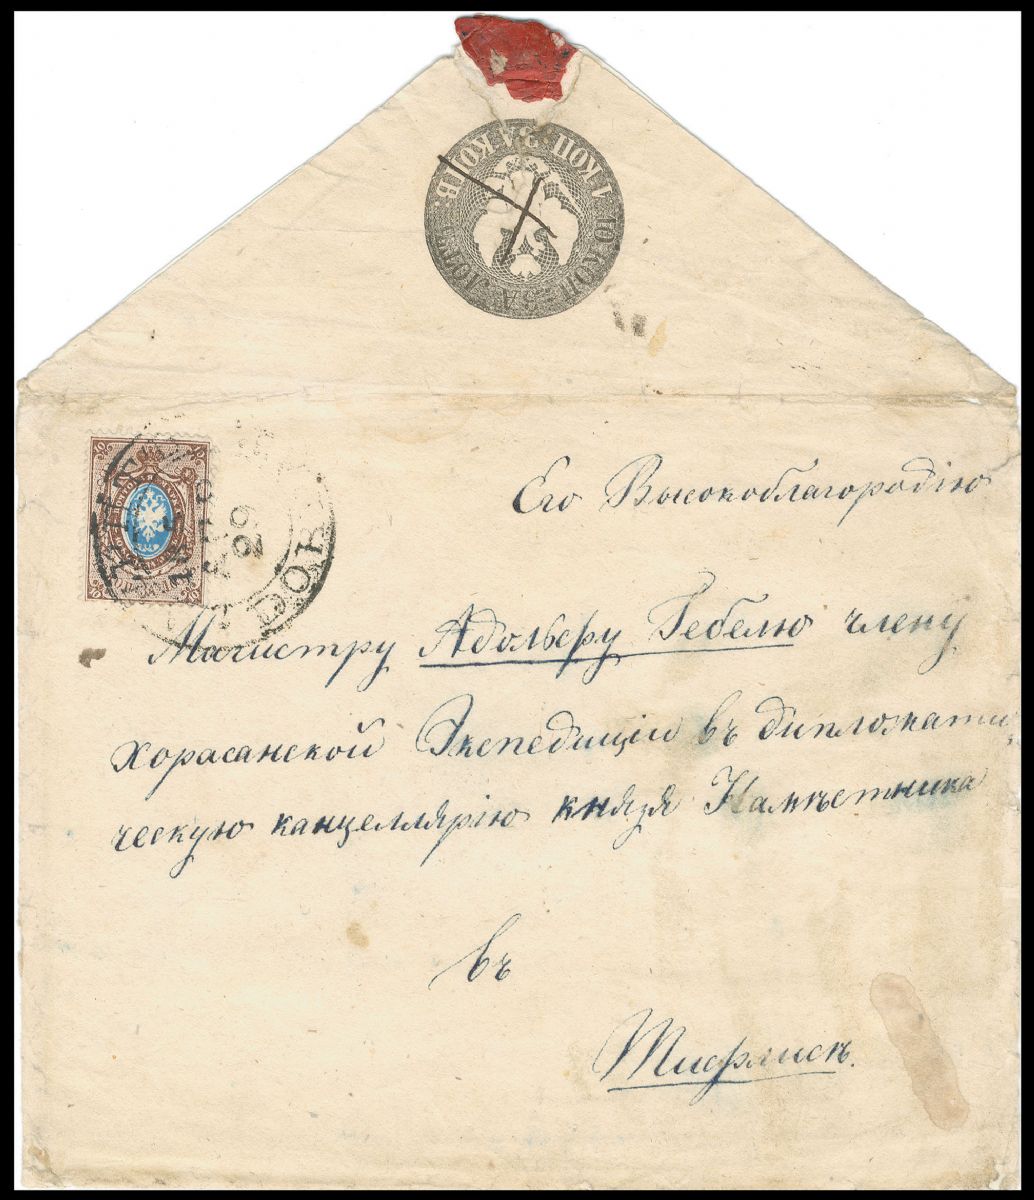 10 КОП. ЗА ЛОТЪ 1 КОП. ЗА КОНВ.
Его Высокоблагородію
Магистру Адольфу Гебелю члену
Хорасанской Экспедиціи въ дипломати
ческую канцеллярію князя Намѣстника
въ
Тифлисъ.
29